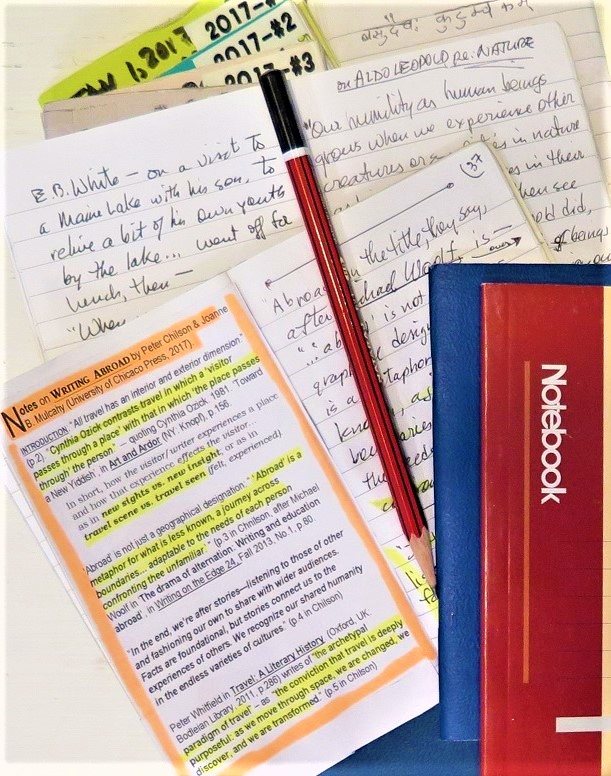 2017-#
JAN 1, 2017
2017-#2
2017-#3
on ALDO LEOPOLD, re: NATURE
"Our humility as human beings
grows when we experience other
creatures or in nature
es in their
hen see
old did,
beings
E.B. White – on a visit to
a Maine lake with his son, to
relive a bit of his own youth
by the lake... went off for
lunch, then –
"When
(37)
"Abroa on the title, they say,
after hael Woolf, is –
"...ab is not
graph desig
is a taphor
kno
Notes on WRITING ABROAD by Peter Chilson & Joanne
B. Mulcahy (University of Chicaco Press, 2017).
INTRODUCTION "All travel has an interior and exterior dimension"
(p.2) - "Cynthia Ozick contrasts travel in which a 'visitor
passes through a place' with that in which 'the place passes
through the person'" – quoting Cynthia Ozick, 1981 "Toward
a New Yiddish", in Art and Ardor (NY, Knopf), p 156
In short, how the visitor/writer experiences a place
and how that experience effects the visitor...
as in new sights vs. new insight, or as in
travel scene vs. travel seen (felt, experienced)
'Abroad' is not just a geographical designation." "'Abroad' is a
metaphor for what is less known, a journey across
boundaries... adaptable to the needs of each person
confronting thee unfamiliar." (p 3 in Chnilson, after Michael
Woolf in "The drama of alternation: Writing and education
abroad", in Writing on the Edge 24, Fall 2013, No 1, p.80
"In the end, we're after stories—listening to those of other
and fashioning our own to share with wider audiences.
Facts are foundational, but stories connect us to the
experiences of others. We recognize our shared humanity
in the endless varieties of cultures." (p.4 in Chilson)
Peter Whitfield in Travel: A Literary History (Oxford, UK:
Bodleian Library, 2011, p.286) writes of "the archetypal
paradigm of travel" – as "the conviction that travel is deeply
purposeful: as we move through space, we are changed, we
discover, and we are transformed" (p.5 in Chilson)
Notebook